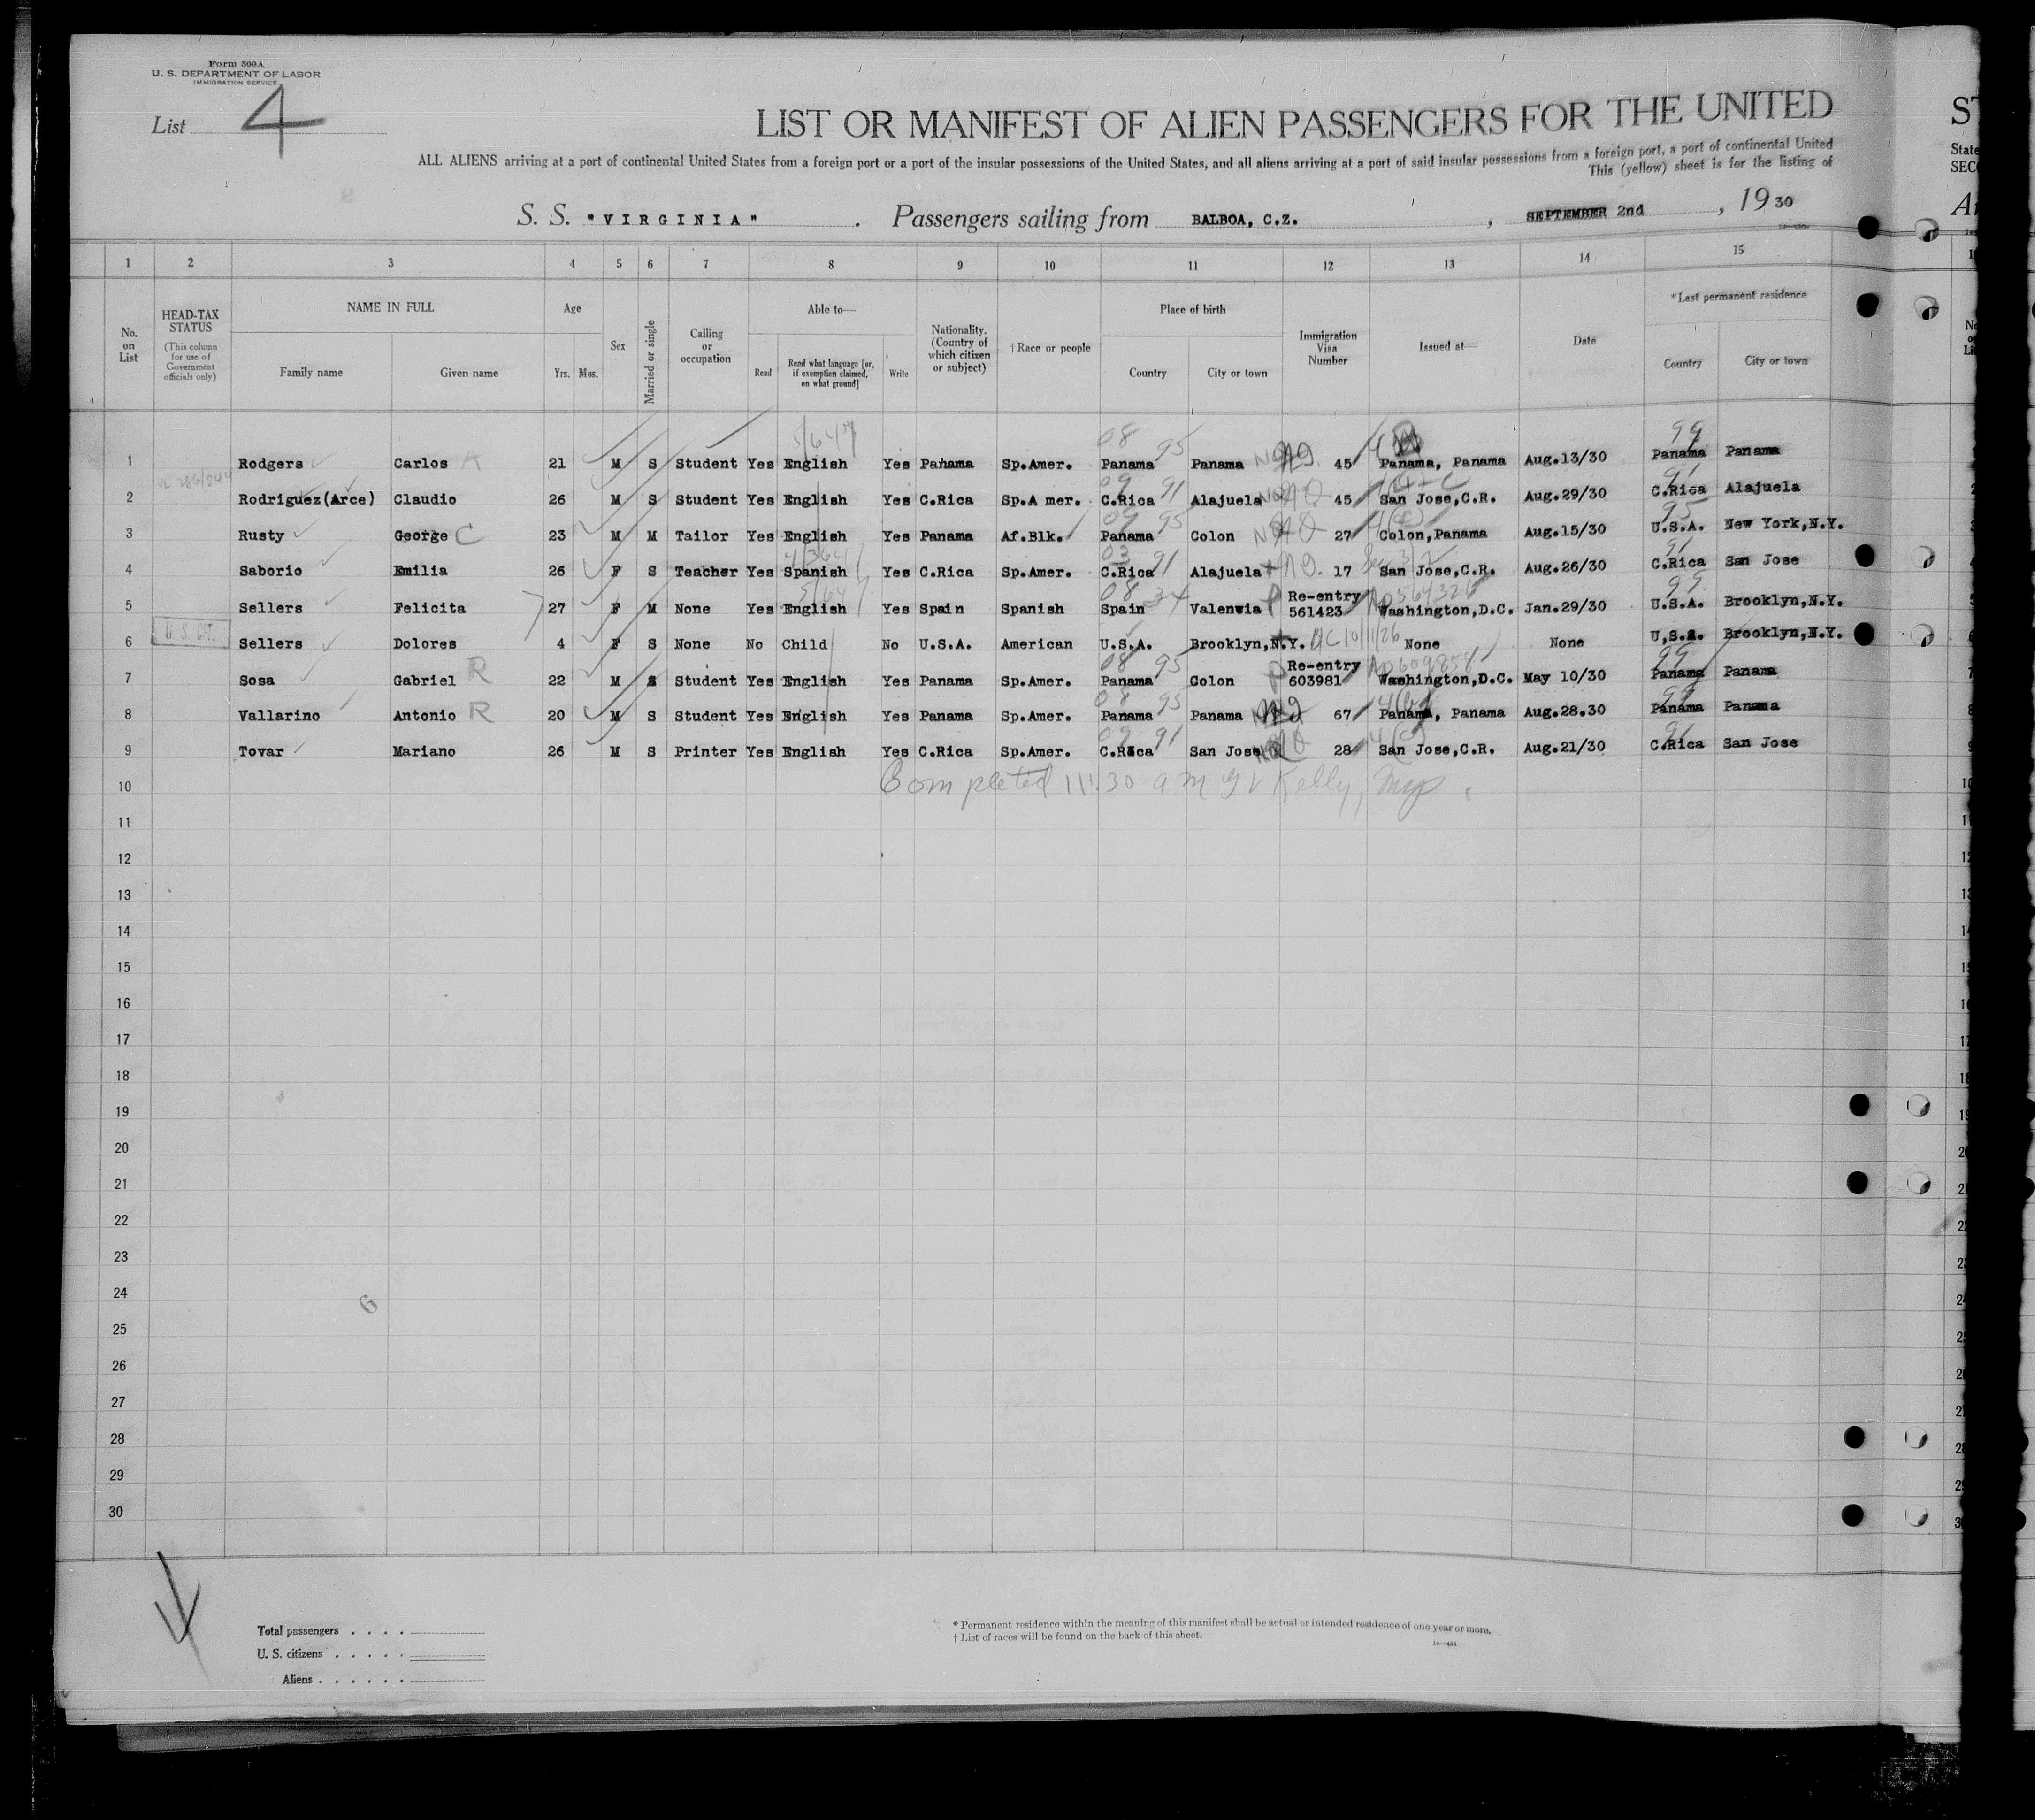 Form 500A
U. S. DEPARTMENT OF LABOR
IMMIGRATION SERVICE
List 4
LIST OR MANIFEST OF ALIEN PASSENGERS FOR THE UNITED
ALL ALIENS arriving at a port of continental United States from a foreign port or a port of the insular possessions of the United States, and all aliens arriving at a port of said insular possessions from a foreign port, a port of continental United
This (yellow) sheet is for the listing of
S. S. "VIRGINIA" . Passengers sailing from BALBOA, C.Z. , SEPTEMBER 2nd , 1930
1 2 3 4 5 6 7 8 9 10 11 12 13 14 15
No. on List
HEAD-TAX STATUS (This column for use of Government officials only)
NAME IN FULL
Family name Given name
Age
Yrs. Mos.
Sex
Married or single
Calling or occupation
Able to—
Read Read what language [or, if exemption claimed, on what ground] Write
Nationality. (Country of which citizen or subject)
†Race or people
Place of birth
Country City or town
Immigration Visa Number
Issued at—
Date
*Last permanent residence
Country City or town
1 Rodgers Carlos 21 M S Student Yes English Yes Panama Sp.Amer. Panama Panama 45 Panama, Panama Aug.13/30 Panama Panama
2 Rodriguez(Arce) Claudio 26 M S Student Yes English Yes C.Rica Sp.A mer. C.Rica Alajuela 45 San Jose,C.R. Aug.29/30 C.Rica Alajuela
3 Rusty George C 23 M M Tailor Yes English Yes Panama Af.Blk. Panama Colon 27 Colon,Panama Aug.15/30 U.S.A. New York,N.Y.
4 Saborio Emilia 26 F S Teacher Yes Spanish Yes C.Rica Sp.Amer. C.Rica Alajuela 17 San Jose,C.R. Aug.26/30 C.Rica San Jose
5 Sellers Felicita 27 F M None Yes English Yes Spain Spanish Spain Valenwia Re-entry 561423 Washington,D.C. Jan.29/30 U.S.A. Brooklyn,N.Y.
U. S. CIT.
6 Sellers Dolores 4 F S None No Child No U.S.A. American U.S.A. Brooklyn,N.Y. None None U.S.A. Brooklyn,N.Y.
7 Sosa Gabriel R 22 M S Student Yes English Yes Panama Sp.Amer. Panama Colon Re-entry 603981 Washington,D.C. May 10/30 Panama Panama
8 Vallarino Antonio R 20 M S Student Yes English Yes Panama Sp.Amer. Panama Panama 67 Panama, Panama Aug.28.30 Panama Panama
9 Tovar Mariano 26 M S Printer Yes English Yes C.Rica Sp.Amer. C.Rica San Jose 28 San Jose,C.R. Aug.21/30 C.Rica San Jose
10 Completed 11:30 a m Kelly, Insp.
11
12
13
14
15
16
17
18
19
20
21
22
23
24
25
26
27
28
29
30
Total passengers . . . .
U. S. citizens . . . . .
Aliens . . . . . .
* Permanent residence within the meaning of this manifest shall be actual or intended residence of one year or more.
† List of races will be found on the back of this sheet.